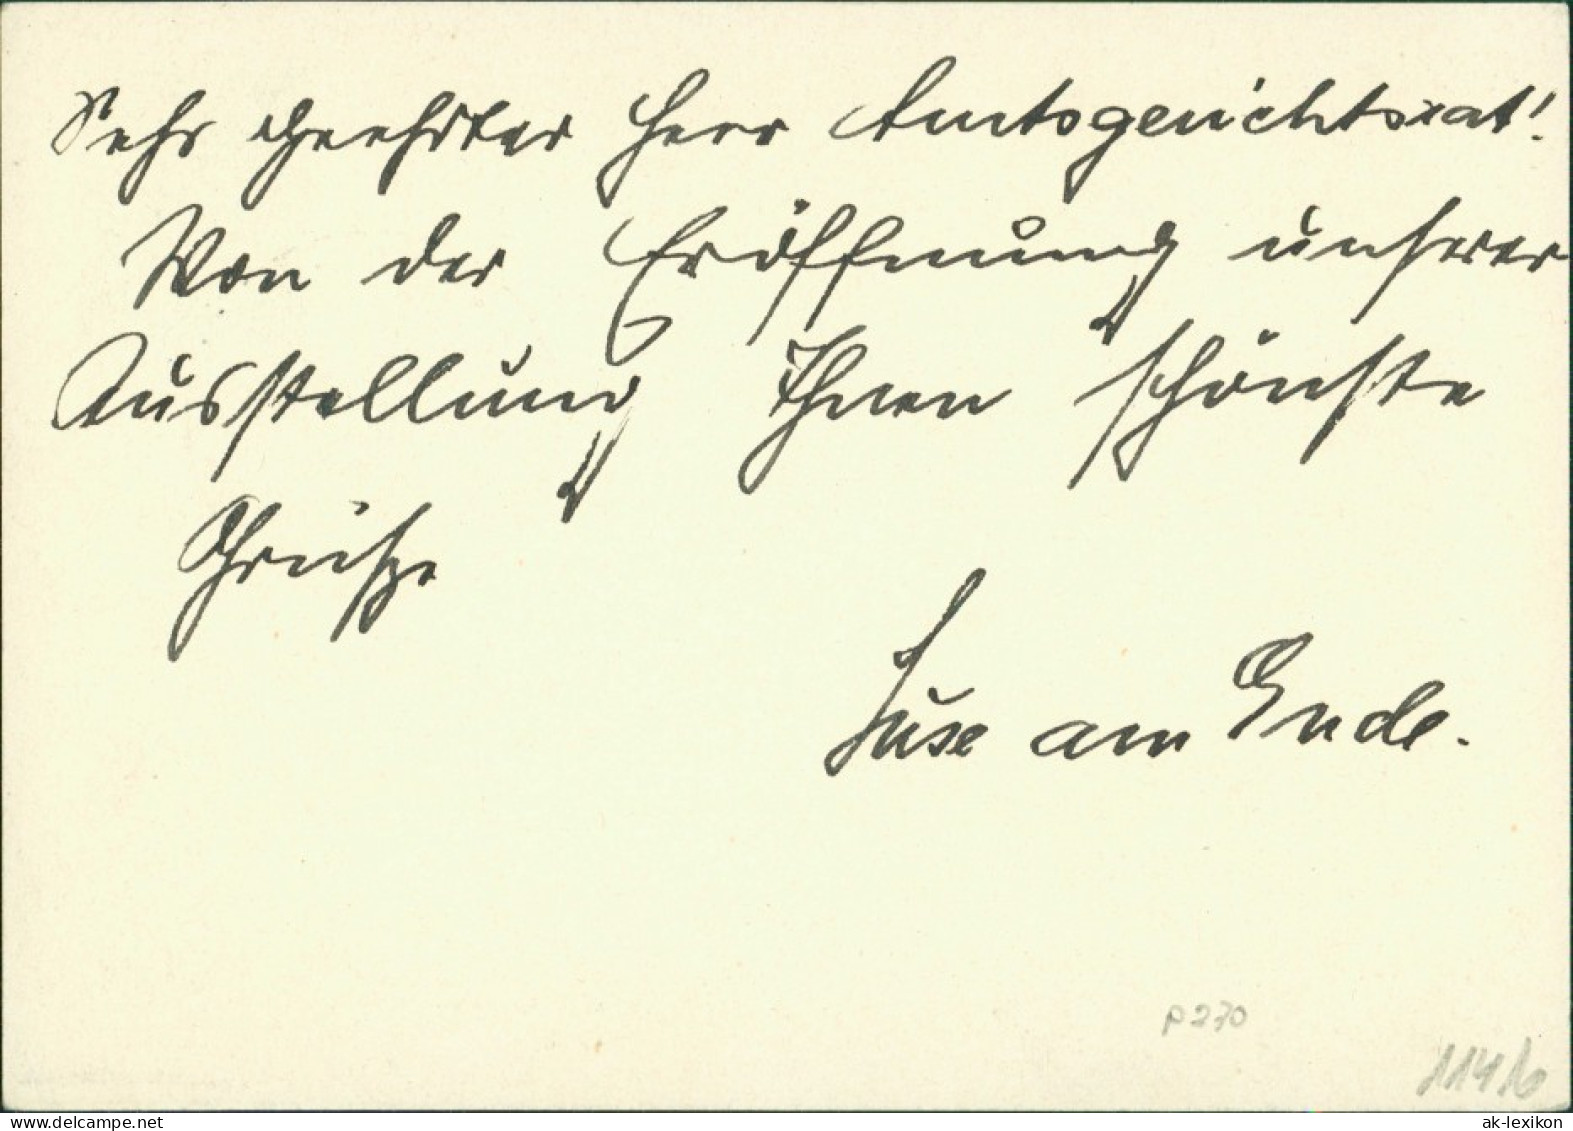 Sehr geehrter Herr Amtsgerichtsrat!
Von der Eröffnung unserer
Ausstellung Ihnen schönste
Grüße
Suse am Ende.
P 270
114
ak-lexikon
www.delcampe.net